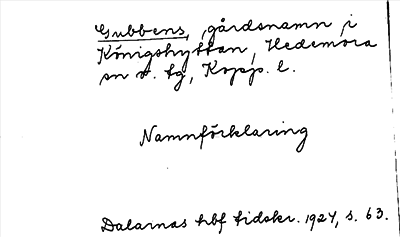 Gubbens, gårdsnamn i
Königshyttan, Hedemora
sn o. tg, Kopp. l.
Namnförklaring
Dalarnas hbf tidskr. 1924, s. 63.